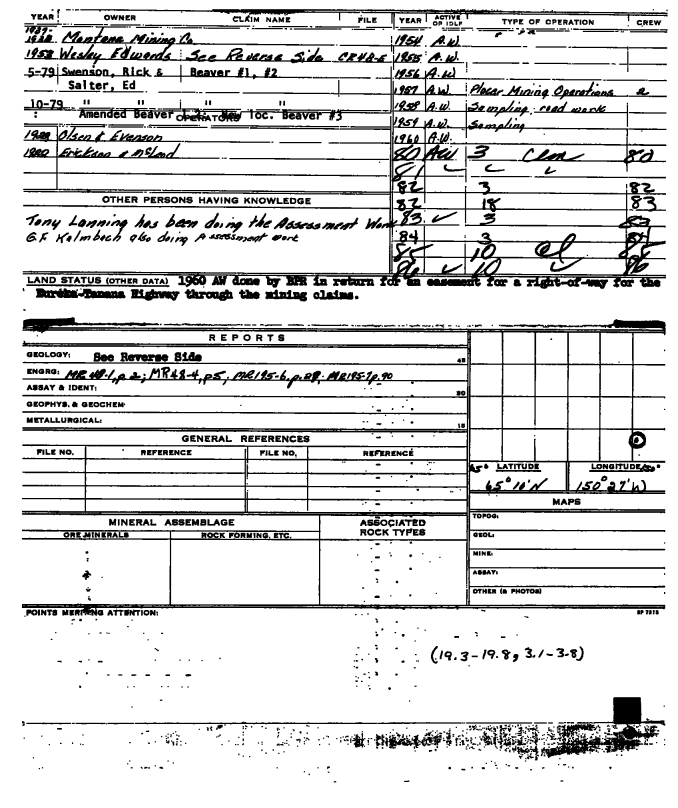 YEAR OWNER CLAIM NAME FILE YEAR ACTIVE OR IDLE TYPE OF OPERATION CREW
Montana Mining Co. 1954 A.W.
1953 Wesley Edwards See Reverse Side 1955 A.W.
5-79 Swenson, Rick & Beaver #1, #2 1956 A.W.
Salter, Ed 1957 A.W. Placer Mining Operations 2
10-79 " " " " 1958 A.W. Sampling, road work
: Amended Beaver loc. Beaver #3
OPERATORS 1959 A.W. Sampling
Olsen & Evenson 1960 A.W.
Erickson & McLeod 80 AW 3 80
81
82 3 82
OTHER PERSONS HAVING KNOWLEDGE 82 18 83
Tony Lanning has been doing the Assessment Work 83 3 83
G.F. Kalmbach also doing Assessment work 84 3 84
85 10 85
86 10 86
LAND STATUS (OTHER DATA) 1960 AW done by BPR in return for an easement for a right-of-way for the
Eureka-Tanana Highway through the mining claims.
REPORTS
GEOLOGY: See Reverse Side
ENGRG: MR 48-1, p 2; MR 48-4, p5; MR195-6, p.28; MR195-7 p.90
ASSAY & IDENT:
GEOPHYS. & GEOCHEM:
METALLURGICAL:
GENERAL REFERENCES
FILE NO. REFERENCE FILE NO. REFERENCE
65° LATITUDE LONGITUDE 150°
65° 10' N 150° 27' W
MAPS
MINERAL ASSEMBLAGE ASSOCIATED ROCK TYPES
ORE MINERALS ROCK FORMING, ETC.
TOPOG:
GEOL:
MINE:
ASSAY:
OTHER (& PHOTOS)
POINTS MERITING ATTENTION:
(19.3-19.8, 3.1-3.8)